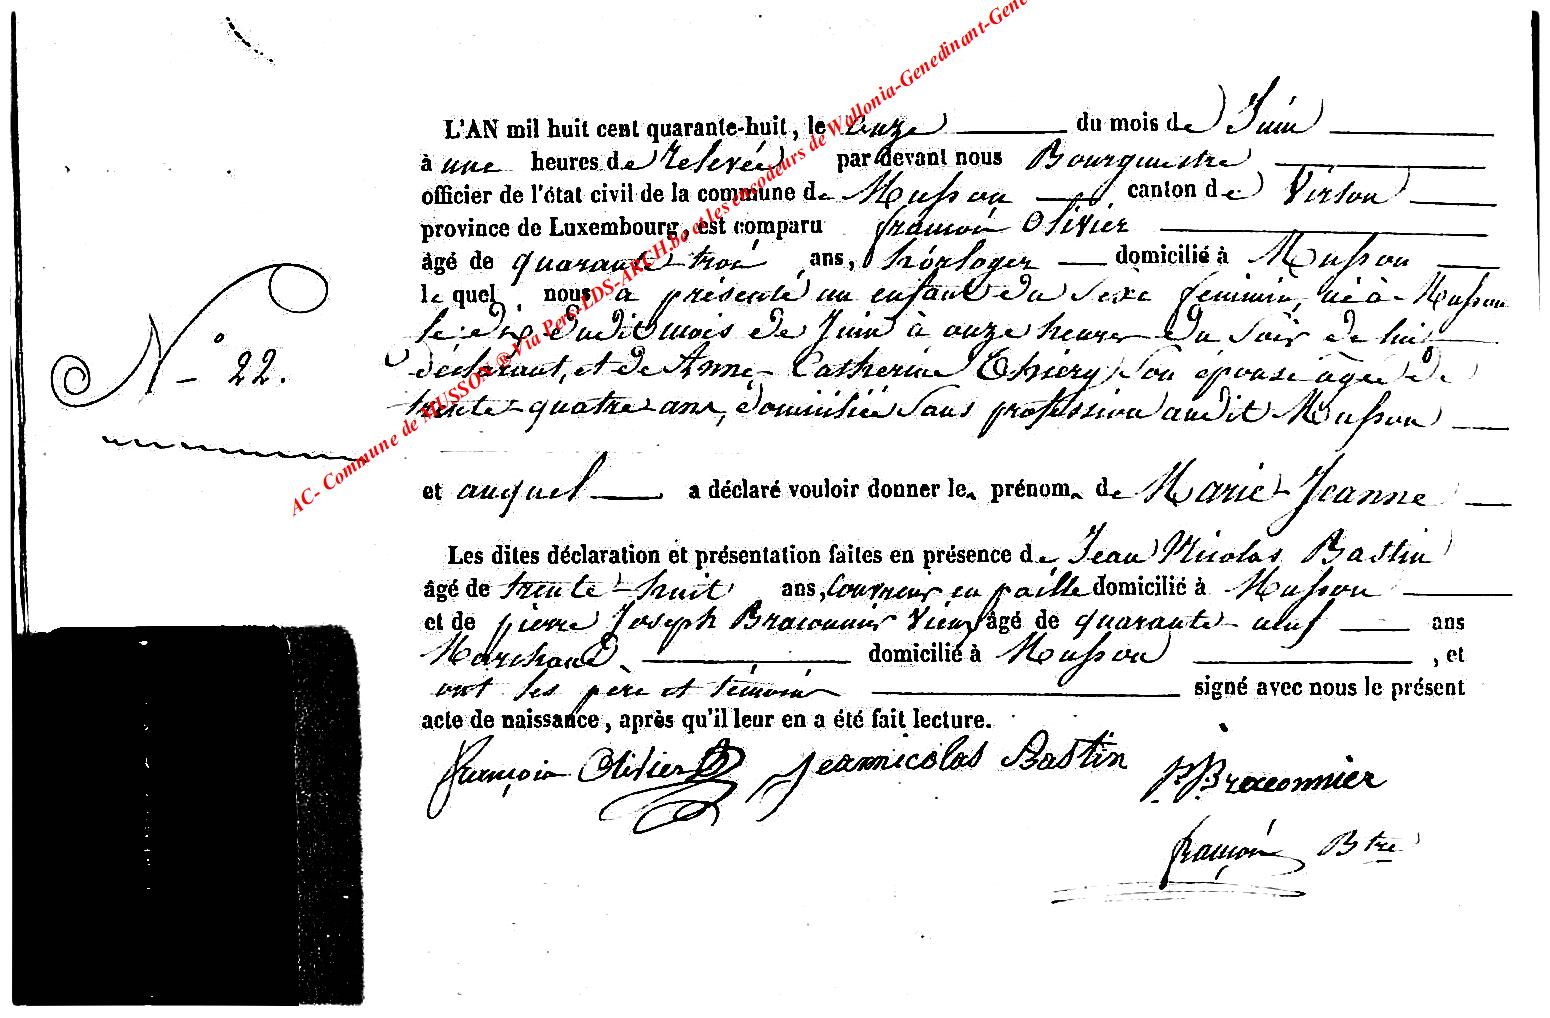 AC- Commune de MUSSON ® Via Pers-LDS-ARCH.be et les encodeurs de Wallonia-Genedinant-Gene
L'AN mil huit cent quarante-huit, le onze du mois de Juin
à une heures de relevée par devant nous Bourgmestre
officier de l'état civil de la commune de Musson canton de Virton
province de Luxembourg, est comparu françois Olivier
âgé de quarante-trois ans, horloger domicilié à Musson
le quel nous a présenté un enfant du sexe feminin, né à Musson
le dix dudit mois de Juin à onze heures du soir de lui
N° 22.
déclarant, et de Anne-Catherine Thiéry son épouse agée de
trente-quatre ans, domiciliée sans profession audit Musson
et auquel a déclaré vouloir donner le prénom de Marie-Jeanne
Les dites déclaration et présentation faites en présence de Jean Nicolas Bastin
âgé de trente-huit ans, couvreur en paille domicilié à Musson
et de pierre Joseph Braconnier vieux âgé de quarante-neuf ans
Marchand domicilié à Musson , et
ont les père et témoins signé avec nous le présent
acte de naissance, après qu'il leur en a été fait lecture.
françois Olivier Jeannicolas Bastin
P. J. Braconnier
françois Btre